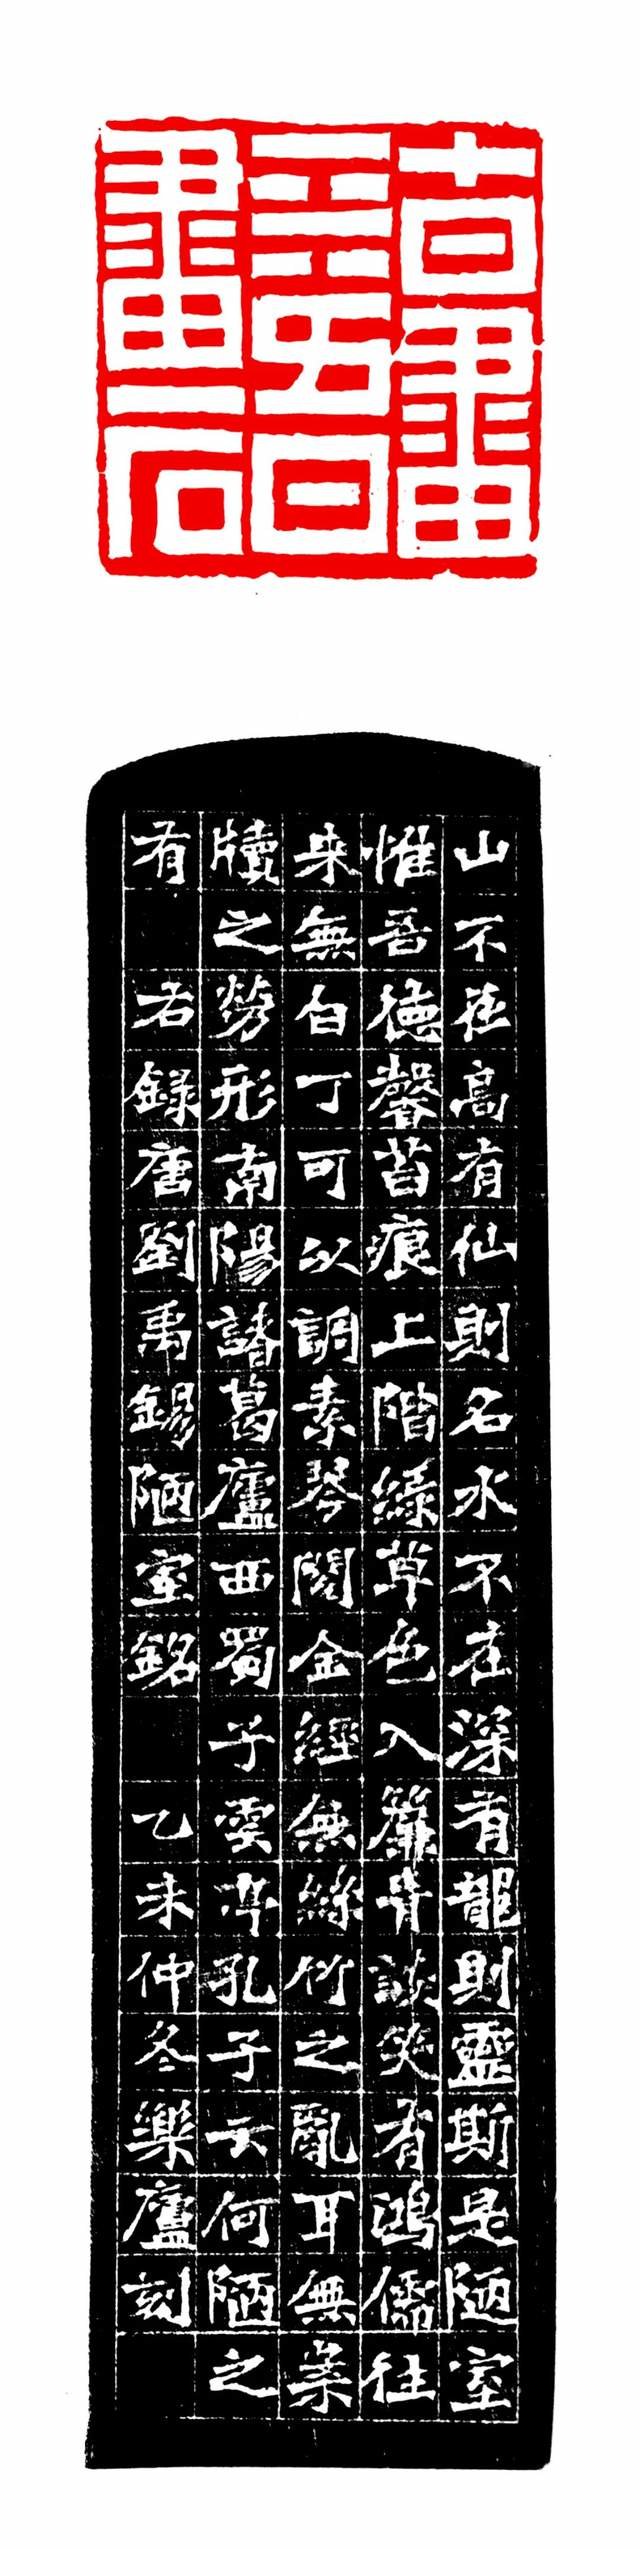 十日畫
一水五日
畫一石
山不在高有仙則名水不在深有龍則靈斯是陋室
惟吾德馨苔痕上階綠草色入簾青談笑有鴻儒往
來無白丁可以調素琴閱金經無絲竹之亂耳無案
牘之勞形南陽諸葛廬西蜀子雲亭孔子云何陋之
有 右錄唐劉禹錫陋室銘 乙未仲冬樂廬刻